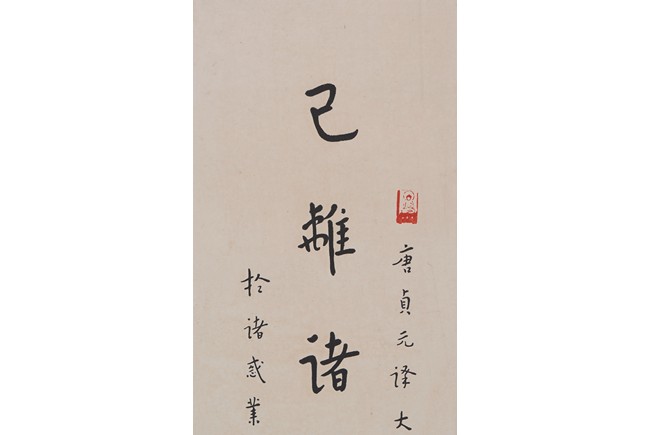 唐貞元譯大
已離諸
於諸惑業